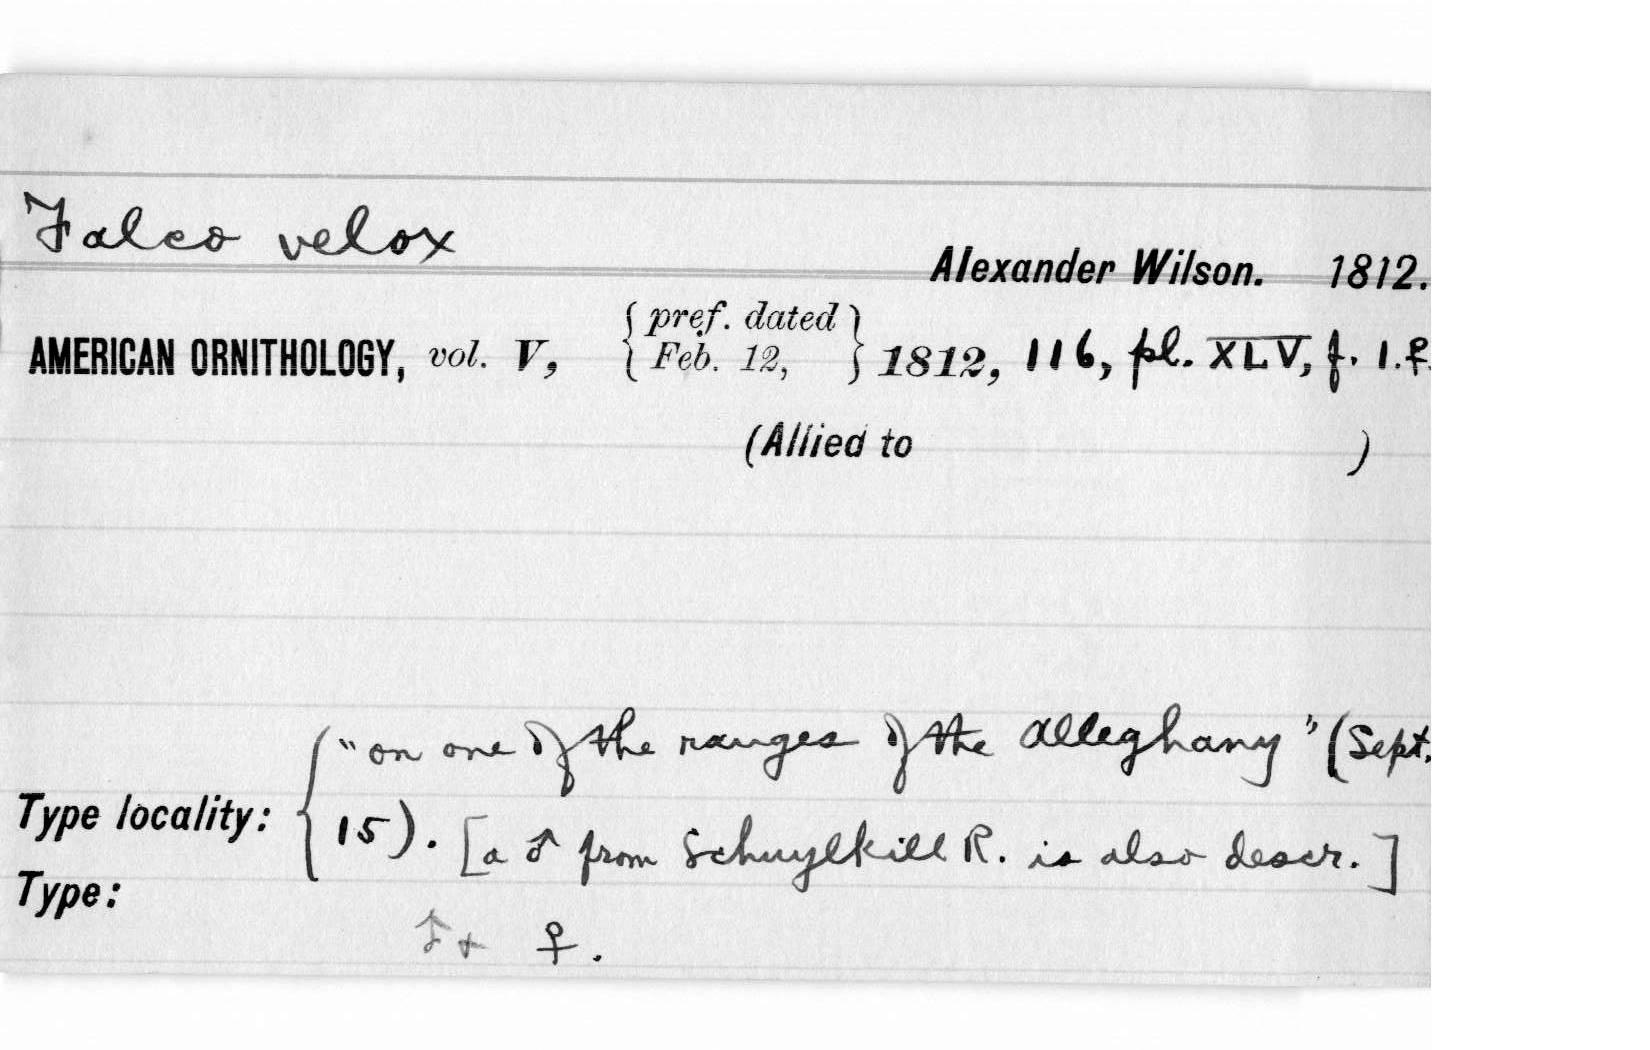 Falco velox
Alexander Wilson. 1812.
AMERICAN ORNITHOLOGY, vol. V, { pref. dated Feb. 12, } 1812, 116, pl. XLV, f. 1. ♀.
(Allied to )
"on one of the ranges of the Alleghany" (Sept.
Type locality: 15). [a ♂ from Schuylkill R. is also descr.]
Type:
♂ + ♀.